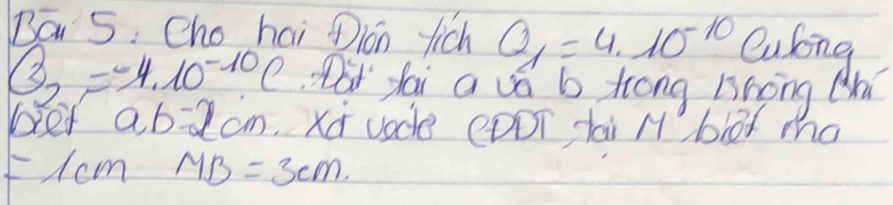 Bài 5: Cho hai Điện tích Q₁ = 4.10⁻¹⁰ Culông
Q₂ = -4.10⁻¹⁰C. Đặt tại a và b trong không khí
biết a,b=2cm. Xđ vectơ CĐĐT tại M biết ma
= 1cm MB = 3cm.